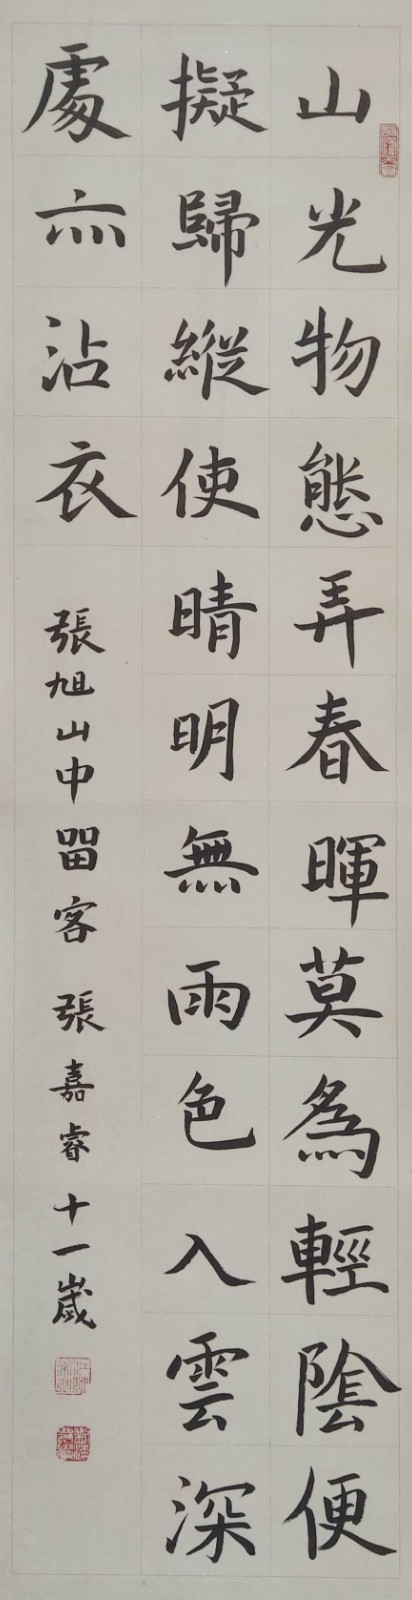 山光物態弄春暉莫為輕陰便
擬歸縱使晴明無雨色入雲深
處亦沾衣
張旭山中畱客 張嘉睿十一歲